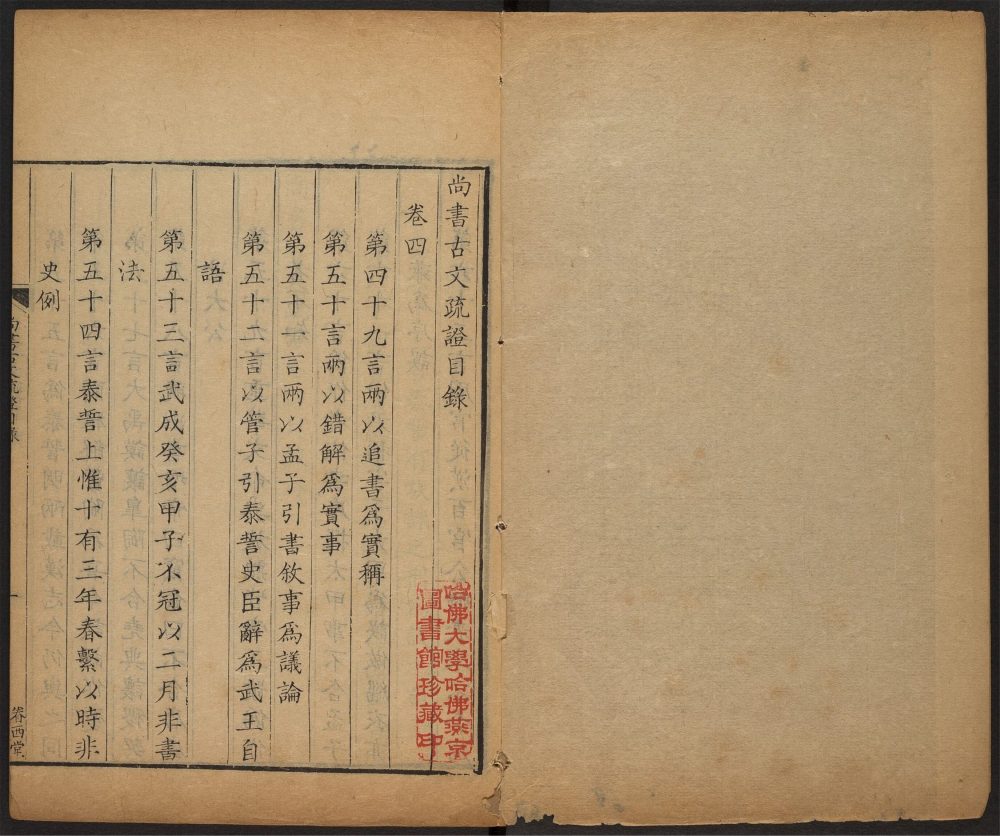 尚書古文疏證目錄
卷四
第四十九言兩以追書爲實稱
第五十言兩以錯解爲實事
第五十一言兩以孟子引書敘事爲議論
第五十二言以管子引泰誓史臣辭爲武王自
語
第五十三言武成癸亥甲子不冠以二月非書
法
第五十四言泰誓上惟十有三年春繫以時非
史例
尚書古文疏證目錄
一
眷西堂
哈佛大學哈佛燕京
圖書館珍藏印